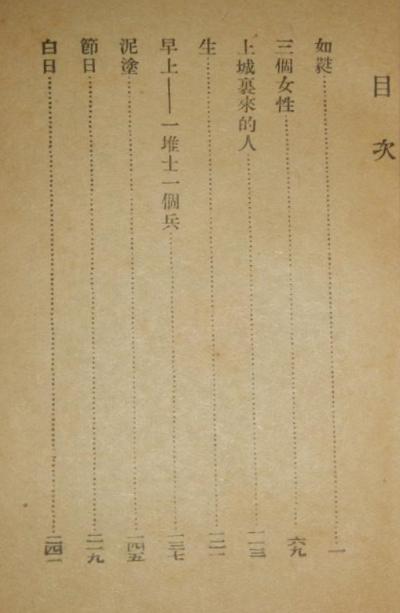 目次
如蕤……一
三個女性……六九
上城裏來的人……一一三
生……一二一
早上——一堆土一個兵……一三七
泥塗……一四五
節日……二一九
白日……二四一